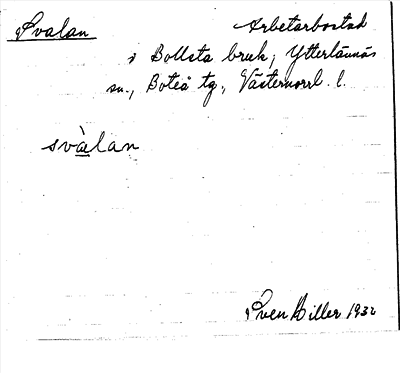 Svalan Arbetarbostad
i Bollsta bruk, Ytterlännäs
sn., Boteå tg., Västernorrl. l.
svàlan
Sven Hiller 1932